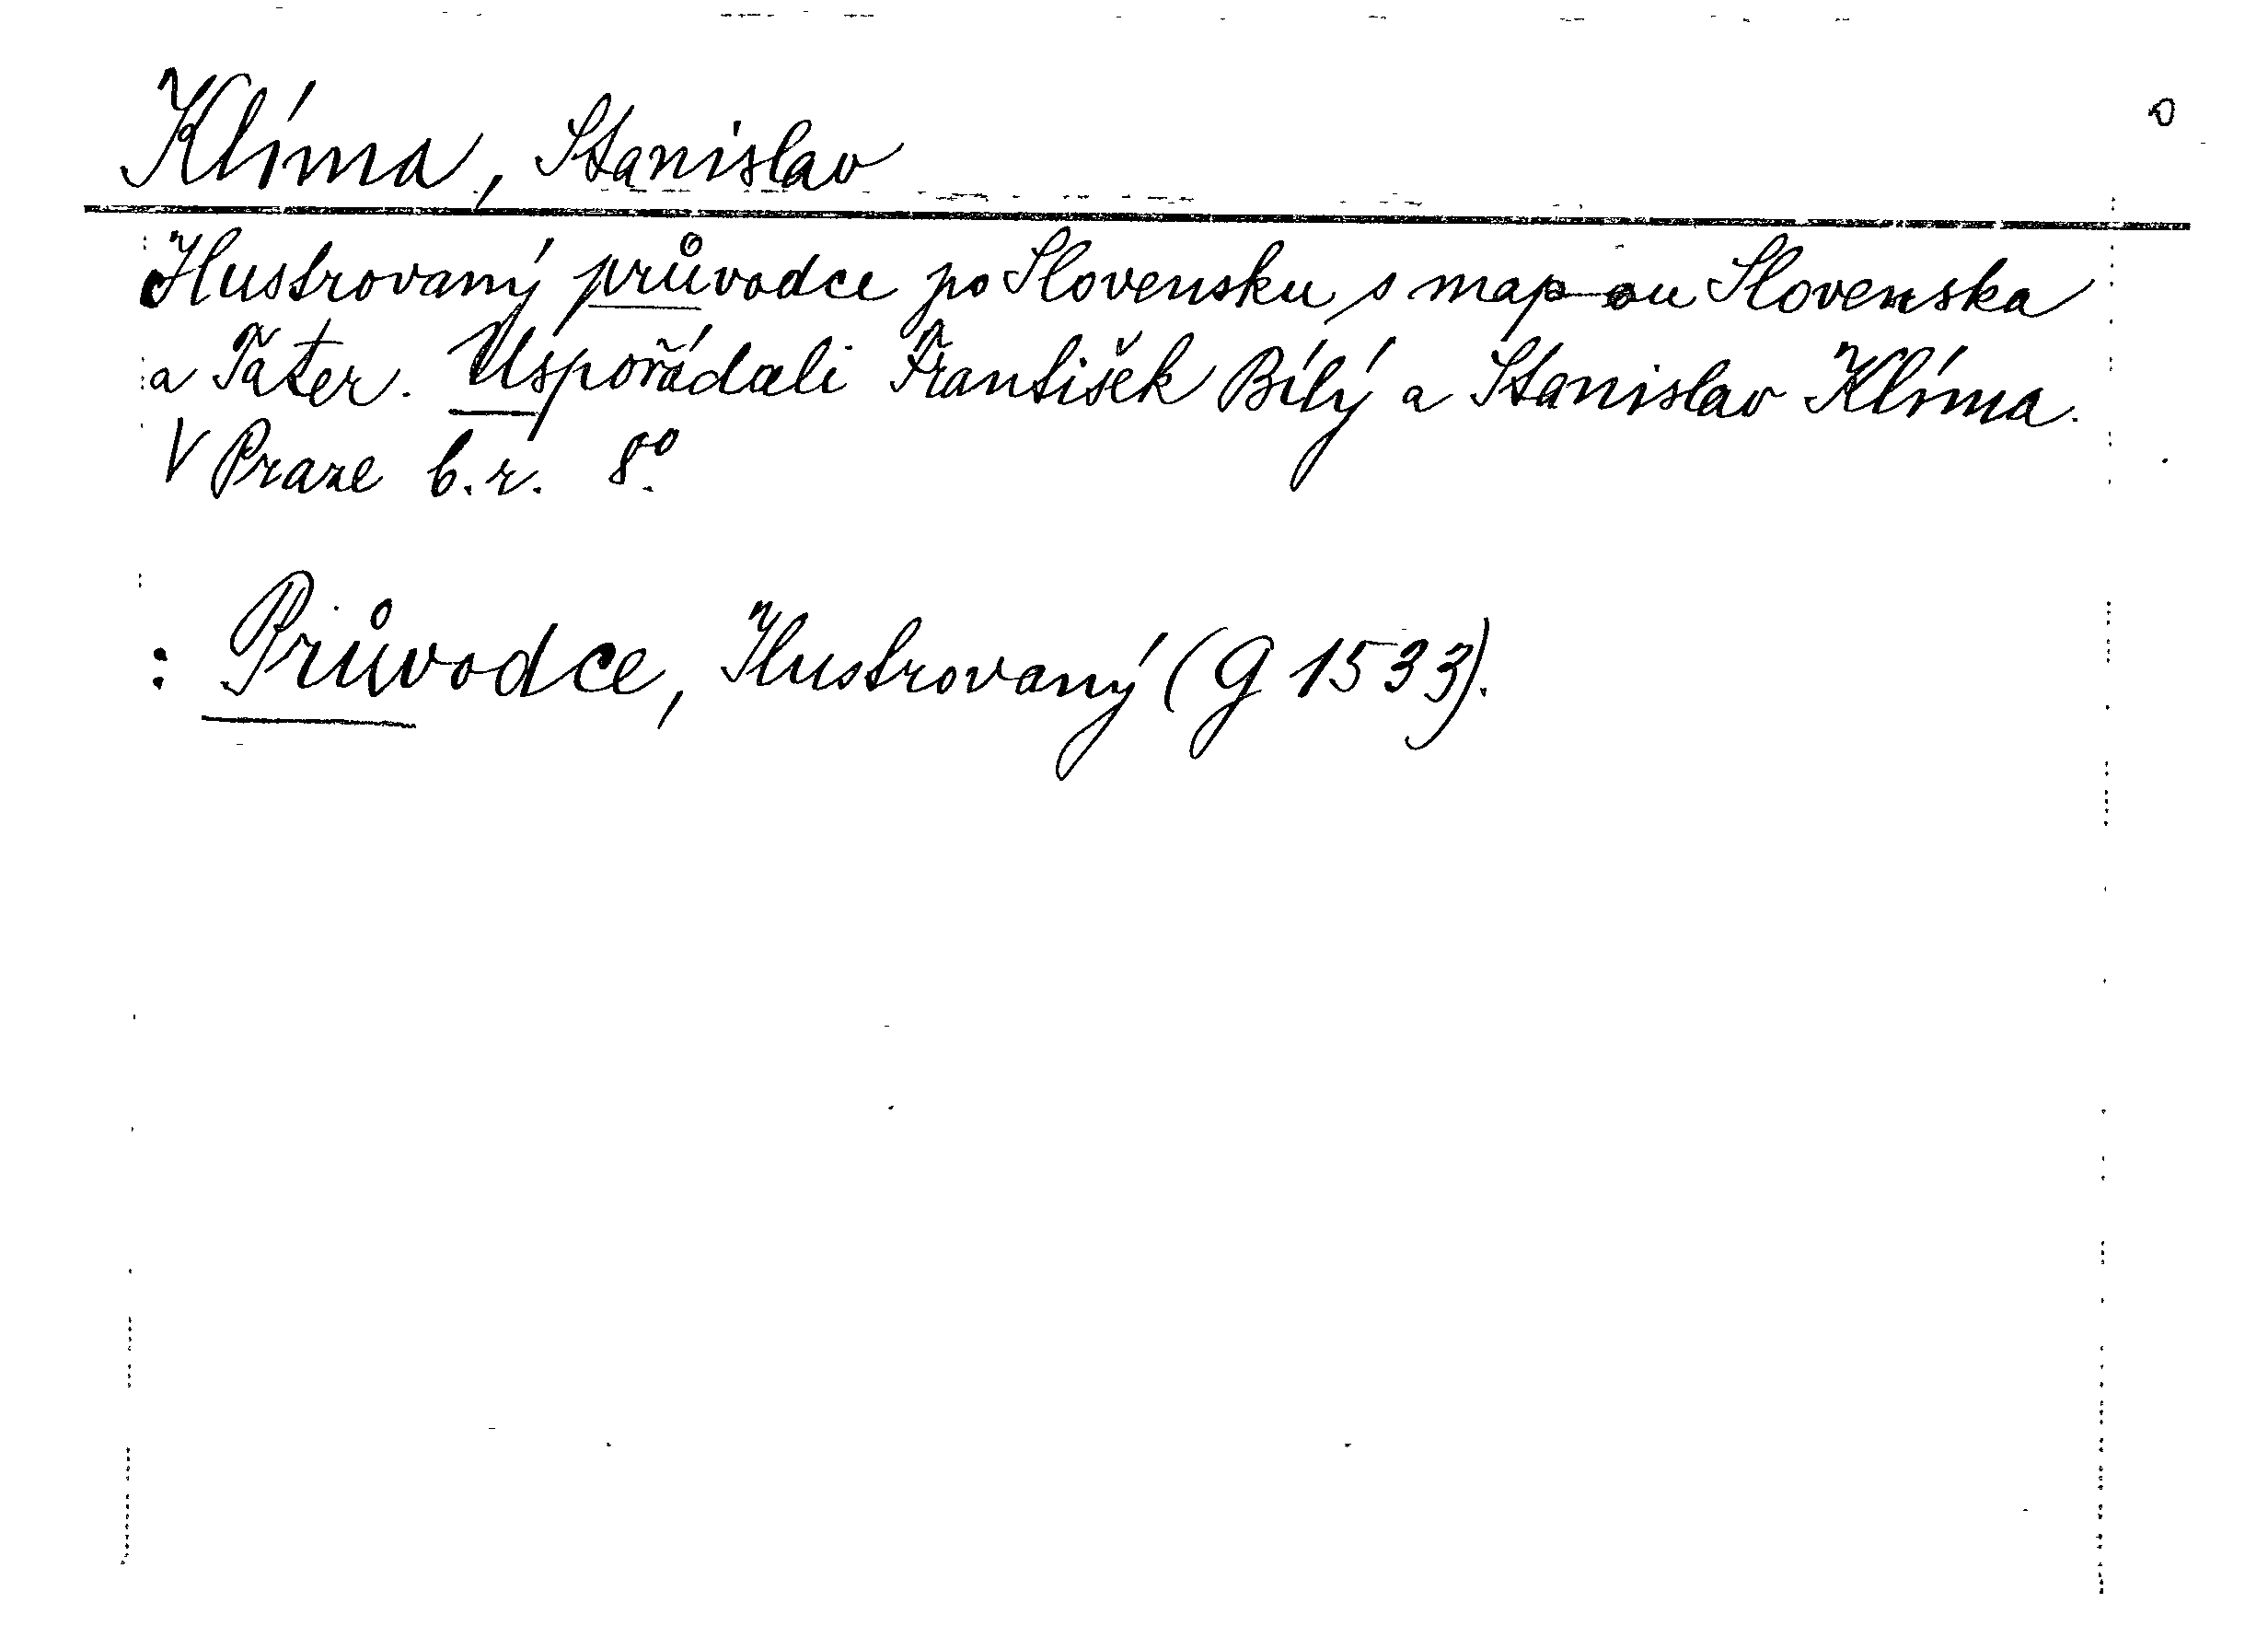 Klíma, Stanislav
Ilustrovaný průvodce po Slovensku s mapou Slovenska
a Tater. Uspořádali František Bílý a Stanislav Klíma.
V Praze b. r. 8°.
: Průvodce, Ilustrovaný (G 1533).